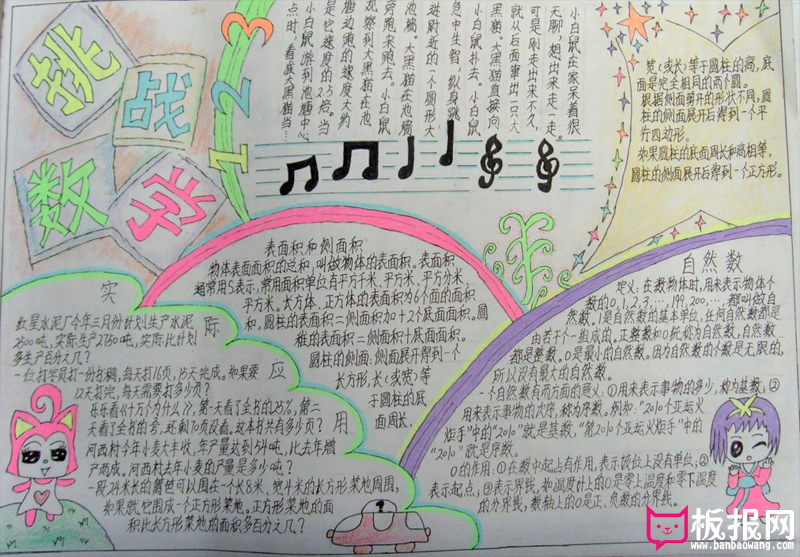 挑战数学
1 2 3
小白鼠在家呆着很
无聊,想出来走一走。
可是刚走出来不久,
就从后面窜出一只大
黑猫,大黑猫直接向
小白鼠扑去。小白鼠
急中生智,纵身跳
进附近的一个圆形大
池塘,大黑猫在池塘
旁跑来跑去。小白鼠
观察到大黑猫在池
塘边跑的速度大约
是它速度的2.5倍。当
小白鼠游到池塘中心
点时,看底大黑猫当…
宽(或长)等于圆柱的高,底
面是完全相同的两个圆。
根据侧面剪开的形状不同,圆
柱的侧面展开后得到一个平
行四边形。
如果圆柱的底面周长和高相等,
圆柱的侧面展开后得到一个正方形。
表面积和侧面积
物体表面面积的总和,叫做物体的表面积。表面积
通常用S表示,常用面积单位有平方千米,平方米,平方分米,
平方米。长方体、正方体的表面积为6个面的面积
和。圆柱的表面积二侧面积加+2个底面面积。圆
锥的表面积二侧面积十底面面积。
圆柱的侧面:侧面展开得到一个
长方形,长(或宽)等
于圆柱的底
面周长.
自然数
定义:在数物体时,用来表示物体个
数的0,1,2,3…,199,200,…都叫做自
然数。1是自然数的基本单位,任何自然数都是
由若干个一组成的。正整数和0统称为自然数,自然数
都是整数。0是最小的自然数,因为自然数的个数是无限的,
所以没有最大的自然数。
一个自然数有两方面的意义:①用来表示事物的多少,称为基数;②
用来表示事物的次序,称为序数。例如:"2010个亚运火
炬手"中的"2010"就是基数,"第2010个亚运火炬手"中的
"2010"就是序数。
0的作用:①在数中起占有作用,表示该位上没有单位;②
表示起点;③表示界线,如温度计上的0是零上温度和零下温度
的分界线,数轴上的0是正、负数的分界线。
实际应用
红星水泥厂今年三月份计划生产水泥
2500吨,实际生产2750吨,实际比计划
多生产百分之几?
一位打字员打一份书稿,每天打16页,15天完成。如果要
12天打完,每天需要打多少页?
乐乐看《十万个为什么?》,第一天看了全书的25%,第二
天看了全书的
还剩70页没看。这本书共有多少页?
河西村今年小麦大丰收,年产量达到54吨,比去年增
产两成。河西村去年小麦的产量是多少吨?
一段24米长的篱笆可以围在一个长8米,宽4米的长方形菜地周围,
如果就它围成一个正方形菜地。正方形菜地的面
积比长方形菜地的面积多百分之几?
板报网
www.banbaowang.com